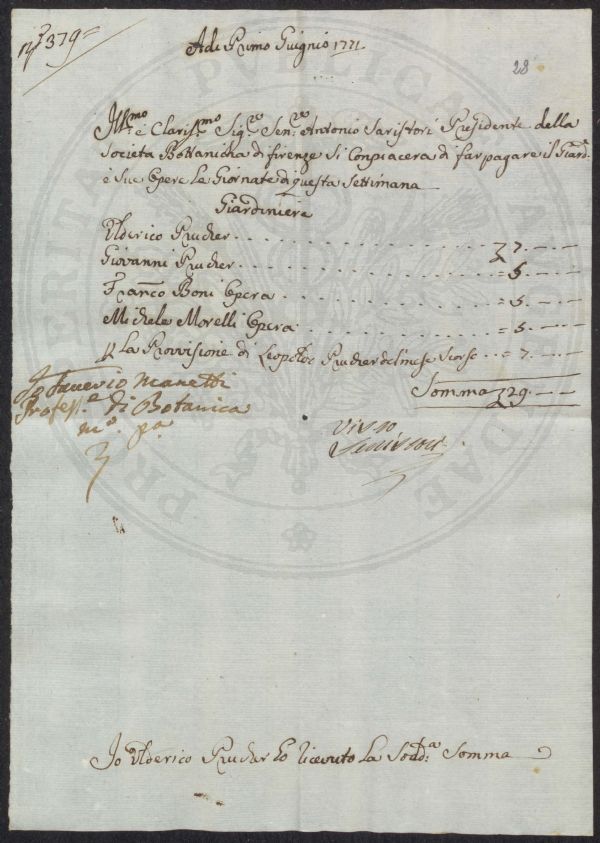 N.° 379=
Adi Primo Guignio 1771
28
Ill:mo e Claris:mo Sig:re Sen:re Antonio Saristori Presidente della
Societa Bottanicha di firenze Si Conpiacera di far pagare il Giard:
e Sue Opere Le Giornate di questa Settimana
Giardiniere
Ulderico Prucher . . . . . . . . . . . . 7. — —
Giovanni Prucher . . . . . . . . . . . = 5. — —
Franco Boni Opera . . . . . . . . . . = 5. — —
Michele Morelli Opera . . . . . . . . = 5. — —
La Provvisione di Leopoldo Prucher del mese Scorso . . = 7. — —
Somma 29. — —
Io Saverio Manetti
Profess:e di Botanica
m:o p:a
Visto
Io Ulderico Prucher ho riceuto La Sodd:a Somma
PRO
PUBLICAE